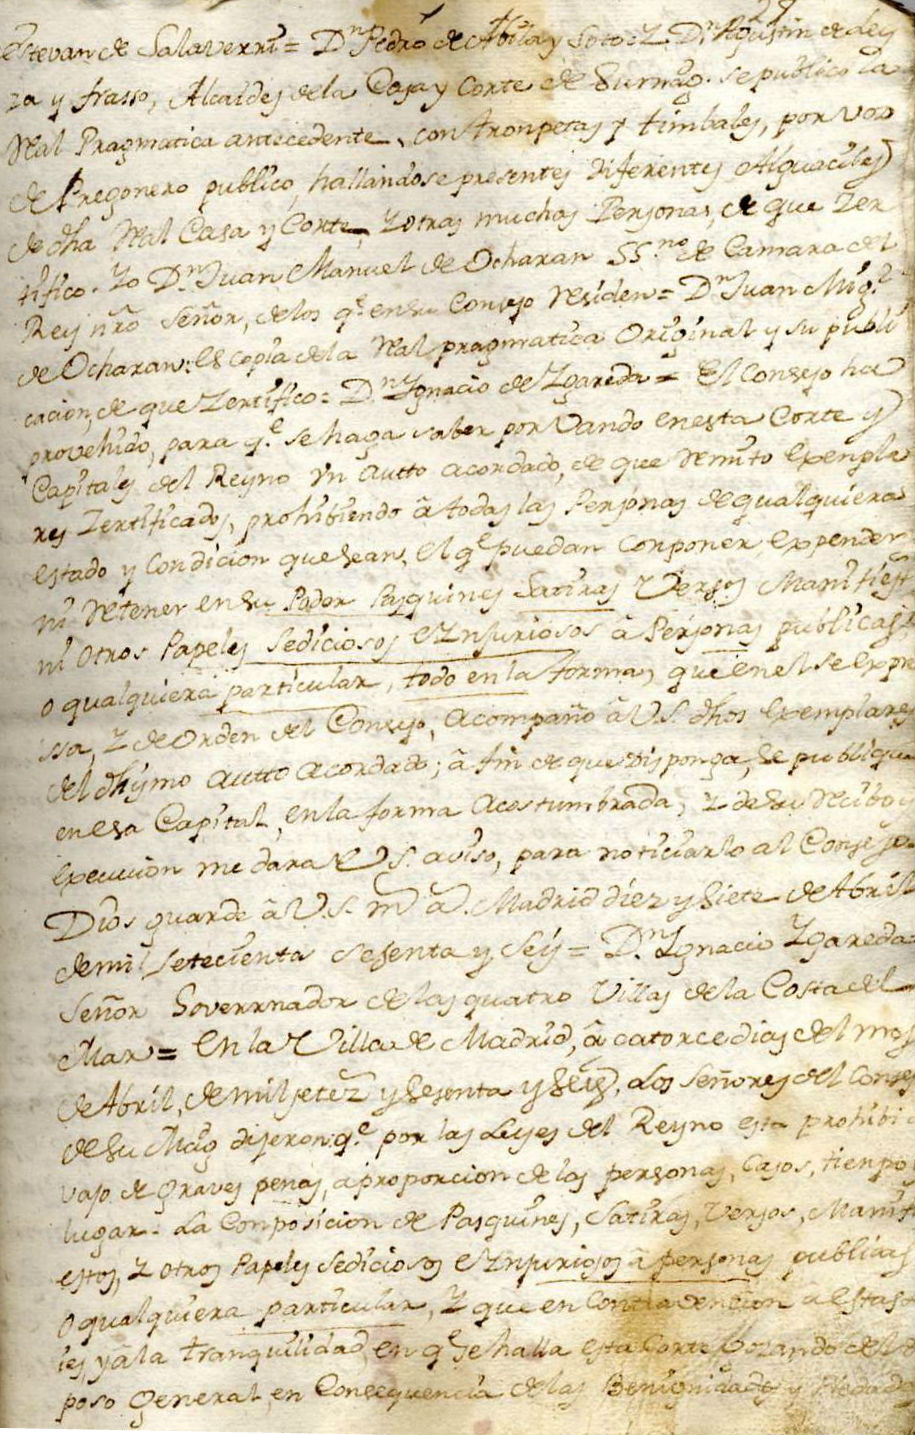 Estevan de Salaverri = Dn Pedro de Abila y Soto: Z Dn Agustin de Ley
za y frasso, Alcaldes de la Casa y Corte de Su Mag. se publico la
Real Pragmatica antecedente, con tronpetas y timbales, por voz
de Pregonero publico, hallandose presentes Diferentes Alguaciles
de dha Real Casa y Corte, y otras muchas Personas, de que Zer
tifico. Yo Dn Juan Manuel de Ocharan SS.no de Camara del
Rey nro Señor, de los q.e en su Consejo Residen = Dn Juan Mig.l
de Ocharan: Es copia de la Real pragmatica Original y su publi
cacion, de que Zertifico = Dn Ygnacio de Ygareda = El Consejo ha
provehido, para q.e se haga saber por Vando en esta Corte y
Capitales del Reyno Un Autto acordado, de que Remito Exempla
res Zertificados, prohibiendo â todas las Personas de qualquiera
estado y Condicion que sean, el q.e puedan Conponer, Expender
ni Retener en su Poder Pasquines Satiras Versos Manifiest
ni Otros Papeles Sediciosos e Ynjuriosos â Personas publicas,
o qualquiera particular, todo en la forma, que en el se Expre
ssa, Z de Orden del Consejo, Acompaño â V.S. dhos Exemplares
del dhymo Autto Acordado; â fin de que Disponga, se publique
en esa Capital, en la forma Acostumbrada, Z de su Recibo y
Execucion me dara V.S. aviso, para noticiarlo al Consejo.
Dios guarde â V.S. m a. Madrid diez y Siete de Abril
de mil Setecienta sesenta y Seis = Dn Ygnacio Ygareda =
Señor Governador de las quatro Villas de la Costa del
Mar = En la Villa de Madrid, â catorce dias del mes
de Abril, de mil setez y sesenta y seis, Los Señores del Consej
de su Mag dijeron q.e por las Leyes del Reyno esta prohibi
vajo de graves penas, a proporcion de las personas, Casos, tienpo
lugar. La Composicion de Pasquines, Satiras, Versos, Manifi
estos, Z otros Papeles Sediciosos e Ynjuriosos â personas publicas
O qualquiera particular, Z que en Contradencion a estas
ies, y â la tranquilidad, en q.e se halla esta Corte Gozando del
poso General, en Consequencia de las Benignidades y Piedades